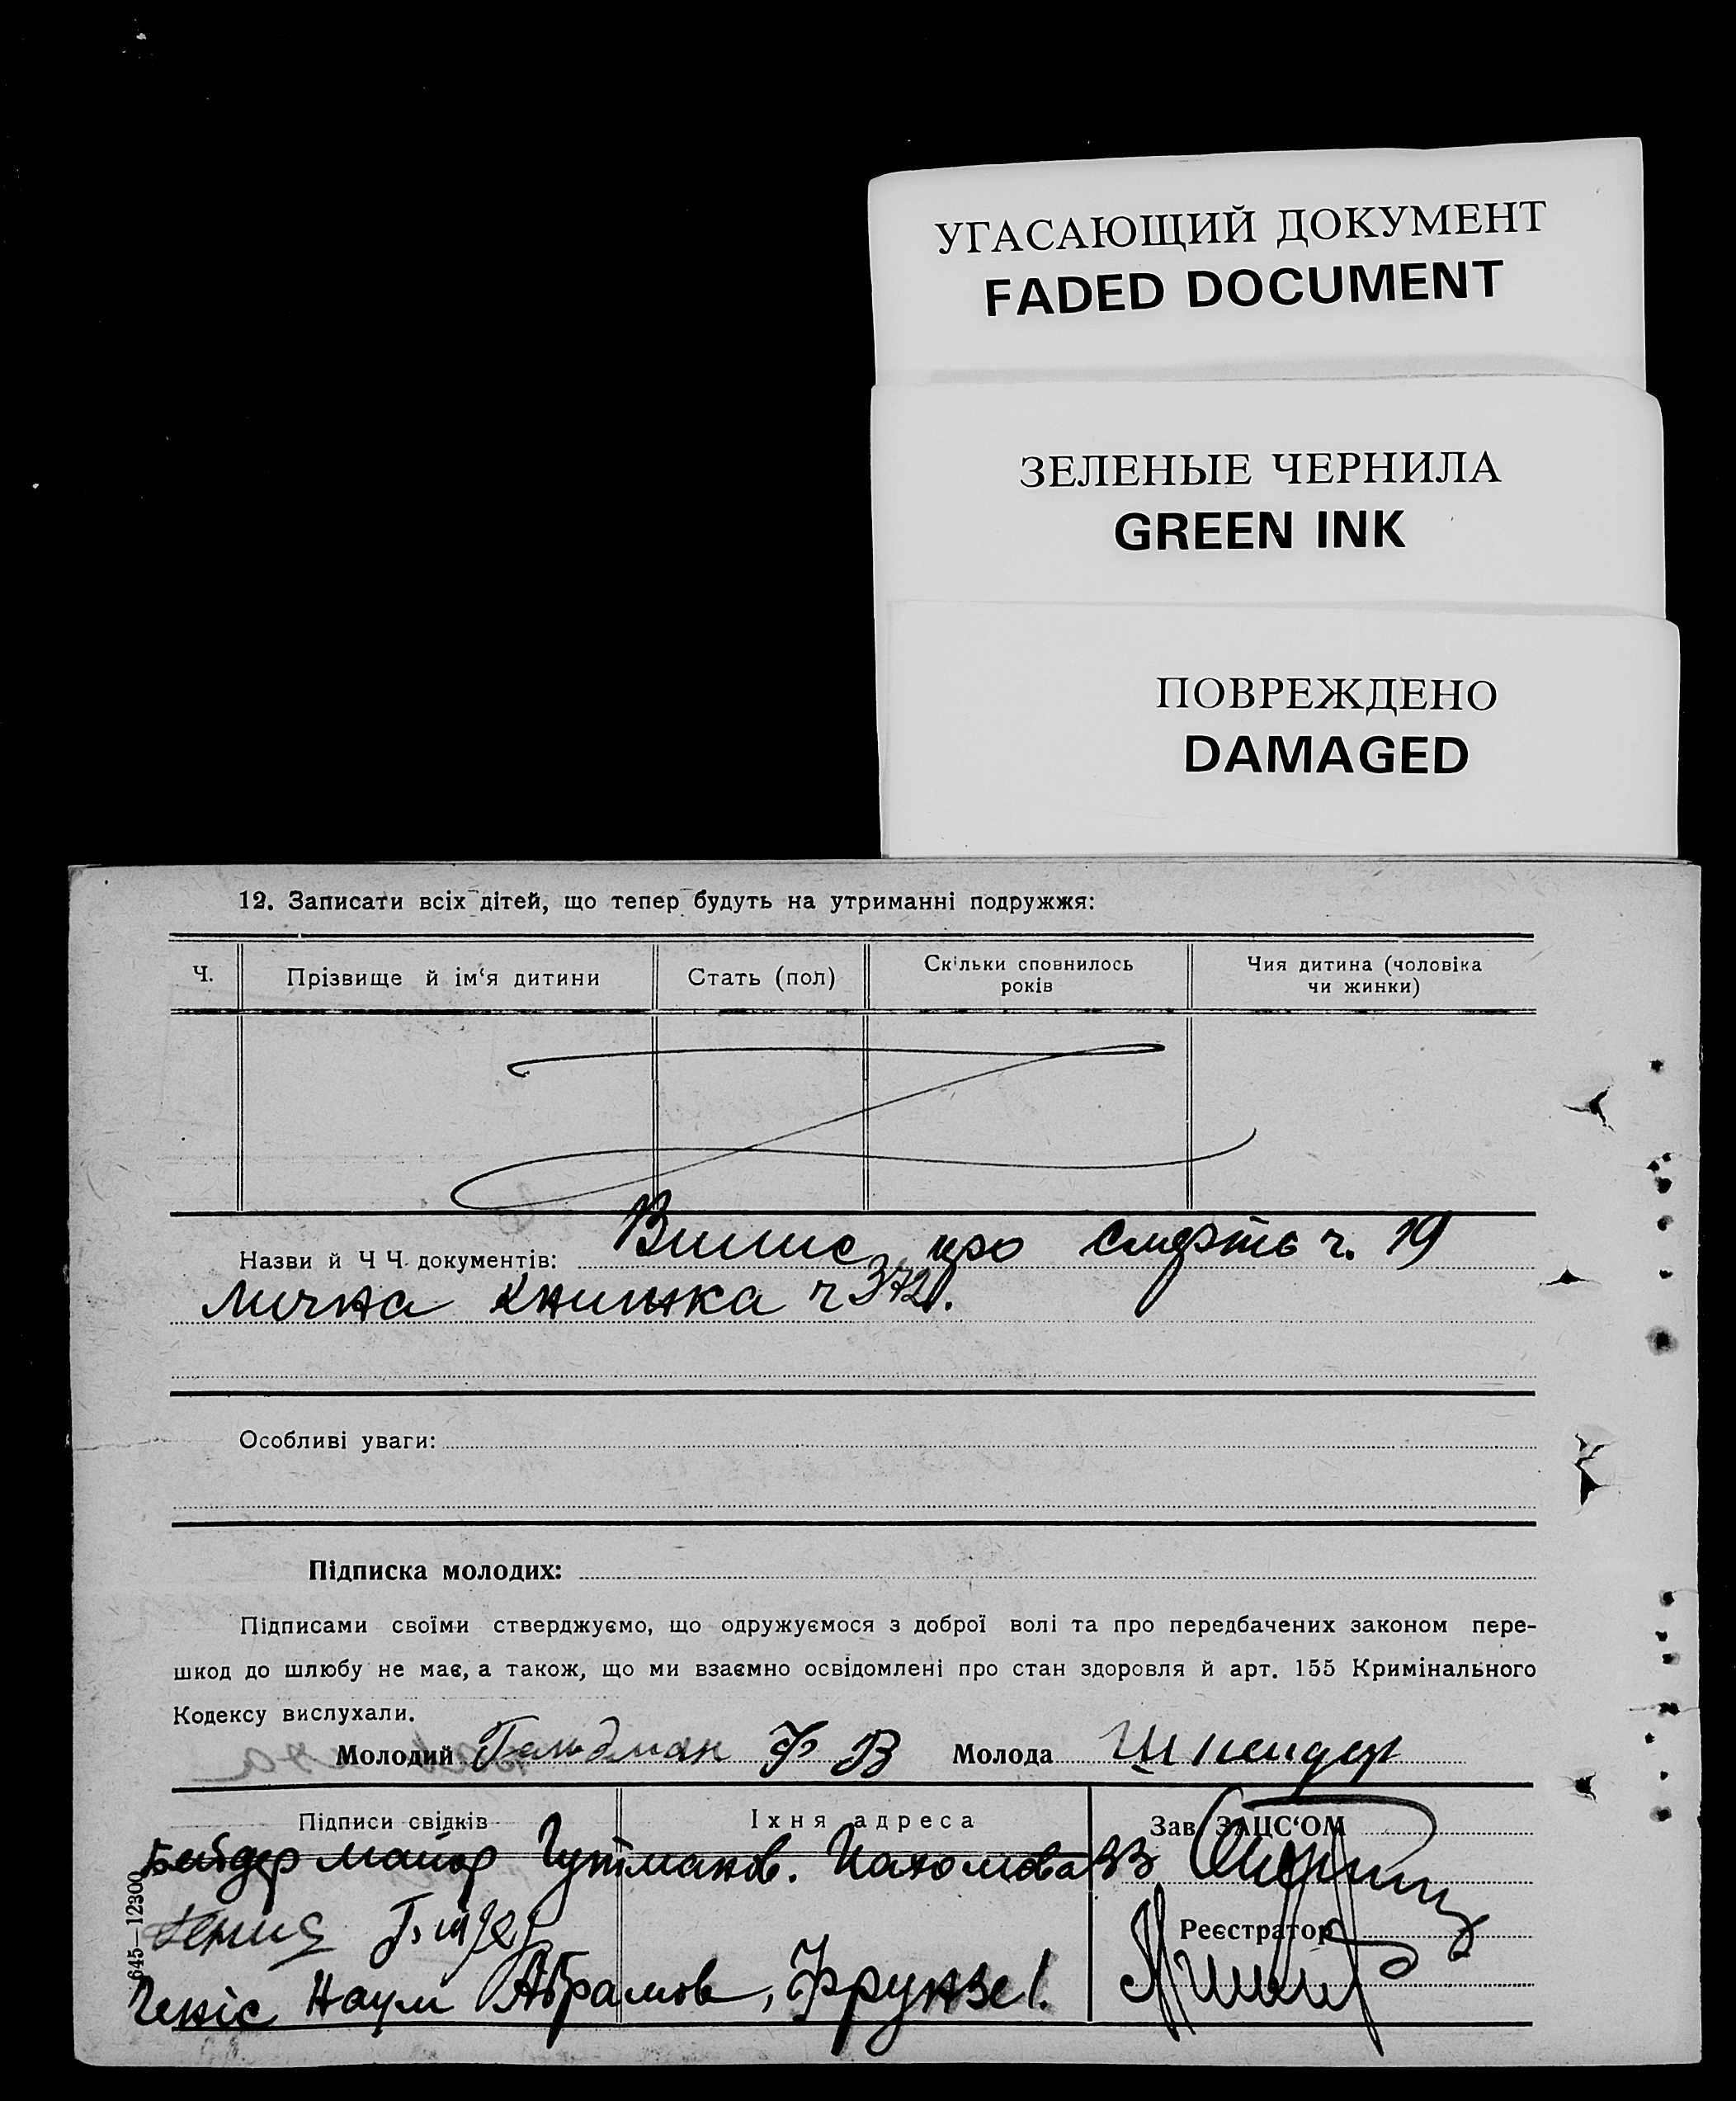 УГАСАЮЩИЙ ДОКУМЕНТ
FADED DOCUMENT
ЗЕЛЕНЫЕ ЧЕРНИЛА
GREEN INK
ПОВРЕЖДЕНО
DAMAGED
12. Записати всіх дітей, що тепер будуть на утриманні подружжя:
Ч.
Прізвище й ім‘я дитини
Стать (пол)
Скільки сповнилось
років
Чия дитина (чоловіка
чи жинки)
Назви й Ч Ч. документів: Випис про смерть ч. 19
Лична книжка ч 372
Особливі уваги:
Підписка молодих:
Підписами своїми стверджуємо, що одружуємося з доброї волі та про передбачених законом пере-
шкод до шлюбу не має, а також, що ми взаємно освідомлені про стан здоровля й арт. 155 Кримінального
Кодексу вислухали.
Молодий Гальдман Ф В Молода
Підписи свідків
Їхня адреса
Зав. ЗАЦС‘ОМ
Майор Гутманов. Пахомова 33
Реєстратор
Ченіс Наум Абрамов, Фрунзе 1.
645—12300